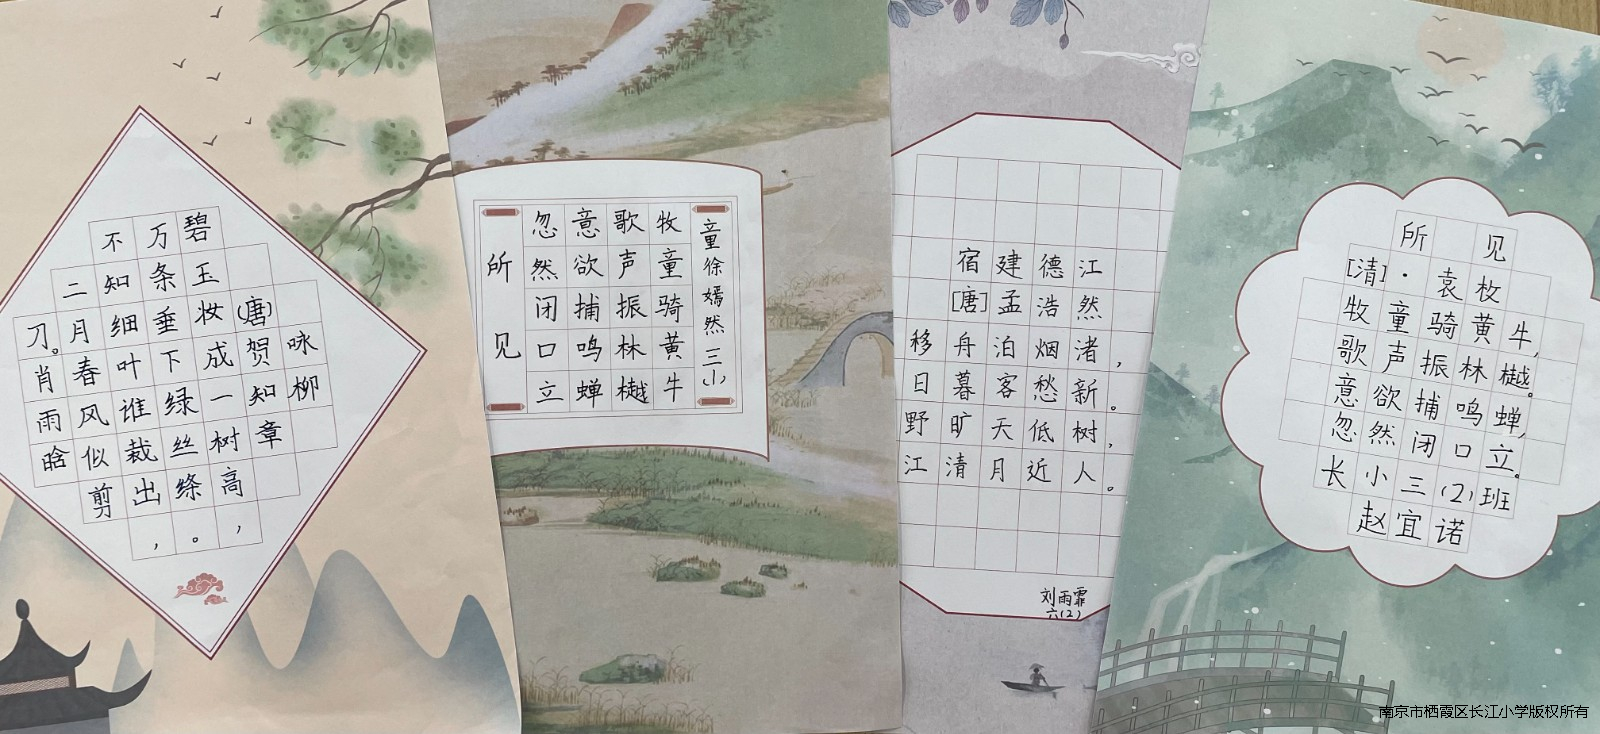 咏柳
(唐)贺知章
碧玉妆成一树高，
万条垂下绿丝绦。
不知细叶谁裁出，
二月春风似剪
刀。肖雨晗
童徐嫣然 三(1)
牧童骑黄牛
歌声振林樾
意欲捕鸣蝉
忽然闭口立
所见
宿建德江
[唐]孟浩然
移舟泊烟渚，
日暮客愁新。
野旷天低树，
江清月近人。
刘雨霏
六(2)
所见
[清]·袁枚
牧童骑黄牛，
歌声振林樾。
意欲捕鸣蝉，
忽然闭口立。
长小三(2)班
赵宜诺
南京市栖霞区长江小学版权所有